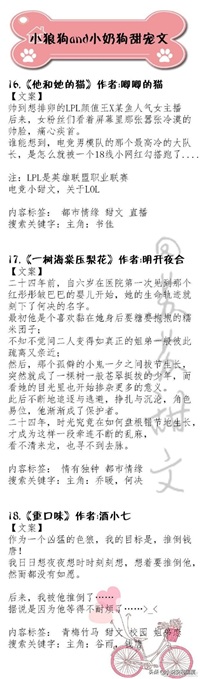 小狼狗and小奶狗甜宠文
16.《他和她的猫》作者:唧唧的猫
【文案】
帅到想排卵的LPL颜值王X某鱼人气女主播
后来，女粉丝们看着屏幕里那张嚣张冷漠的
帅脸，痛心疾首。
谁能想到，电竞男模队的那个最高冷的大队
长，是怎么就被一个18线小网红勾搭跑了....
注：LPL是英雄联盟职业联赛
电竞小甜文，关于LOL
内容标签： 都市情缘 甜文 直播
搜索关键字：主角：书佳
17.《一树海棠压梨花》作者:明开夜合
【文案】
二十四年前，自六岁在医院第一次见到那个
红彤彤皱巴巴的婴儿开始，她的生命轨迹就
刷下了何决的名字。
最初他是个喜欢黏在她身后要糖要抱抱的糯
米团子；
不知不觉间二人变得如真正的姐弟一般彼此
疏离又亲近；
然后，那个孤僻的小鬼一夕之间拔节生长，
突然就成了一棵树一般茎秆挺拔的少年，而
看她的目光里也开始掺杂更多的意义。
此后不断地追逐与逃避，挣扎与沉沦，角色
易位，他渐渐成了保护者。
二十四年，时光究竟在如何盘根错节地生长，
才成为这样一段牵连不断的乱麻，
看不清来龙，也寻不到去脉。
内容标签： 情有独钟 都市情缘
搜索关键字：主角：乔暖，何决
18.《重口味》作者:酒小七
【文案】
作为一个凶猛的色狼，我的目标是，推倒钱
唐！
我日日想夜夜想时时刻刻想，想着要推倒他，
然而都没有如愿。
后来，我被他推倒了……
据说是因为他等得不耐烦了……>_<
内容标签： 青梅竹马 甜文 校园
搜索关键字：主角：谷雨，钱唐